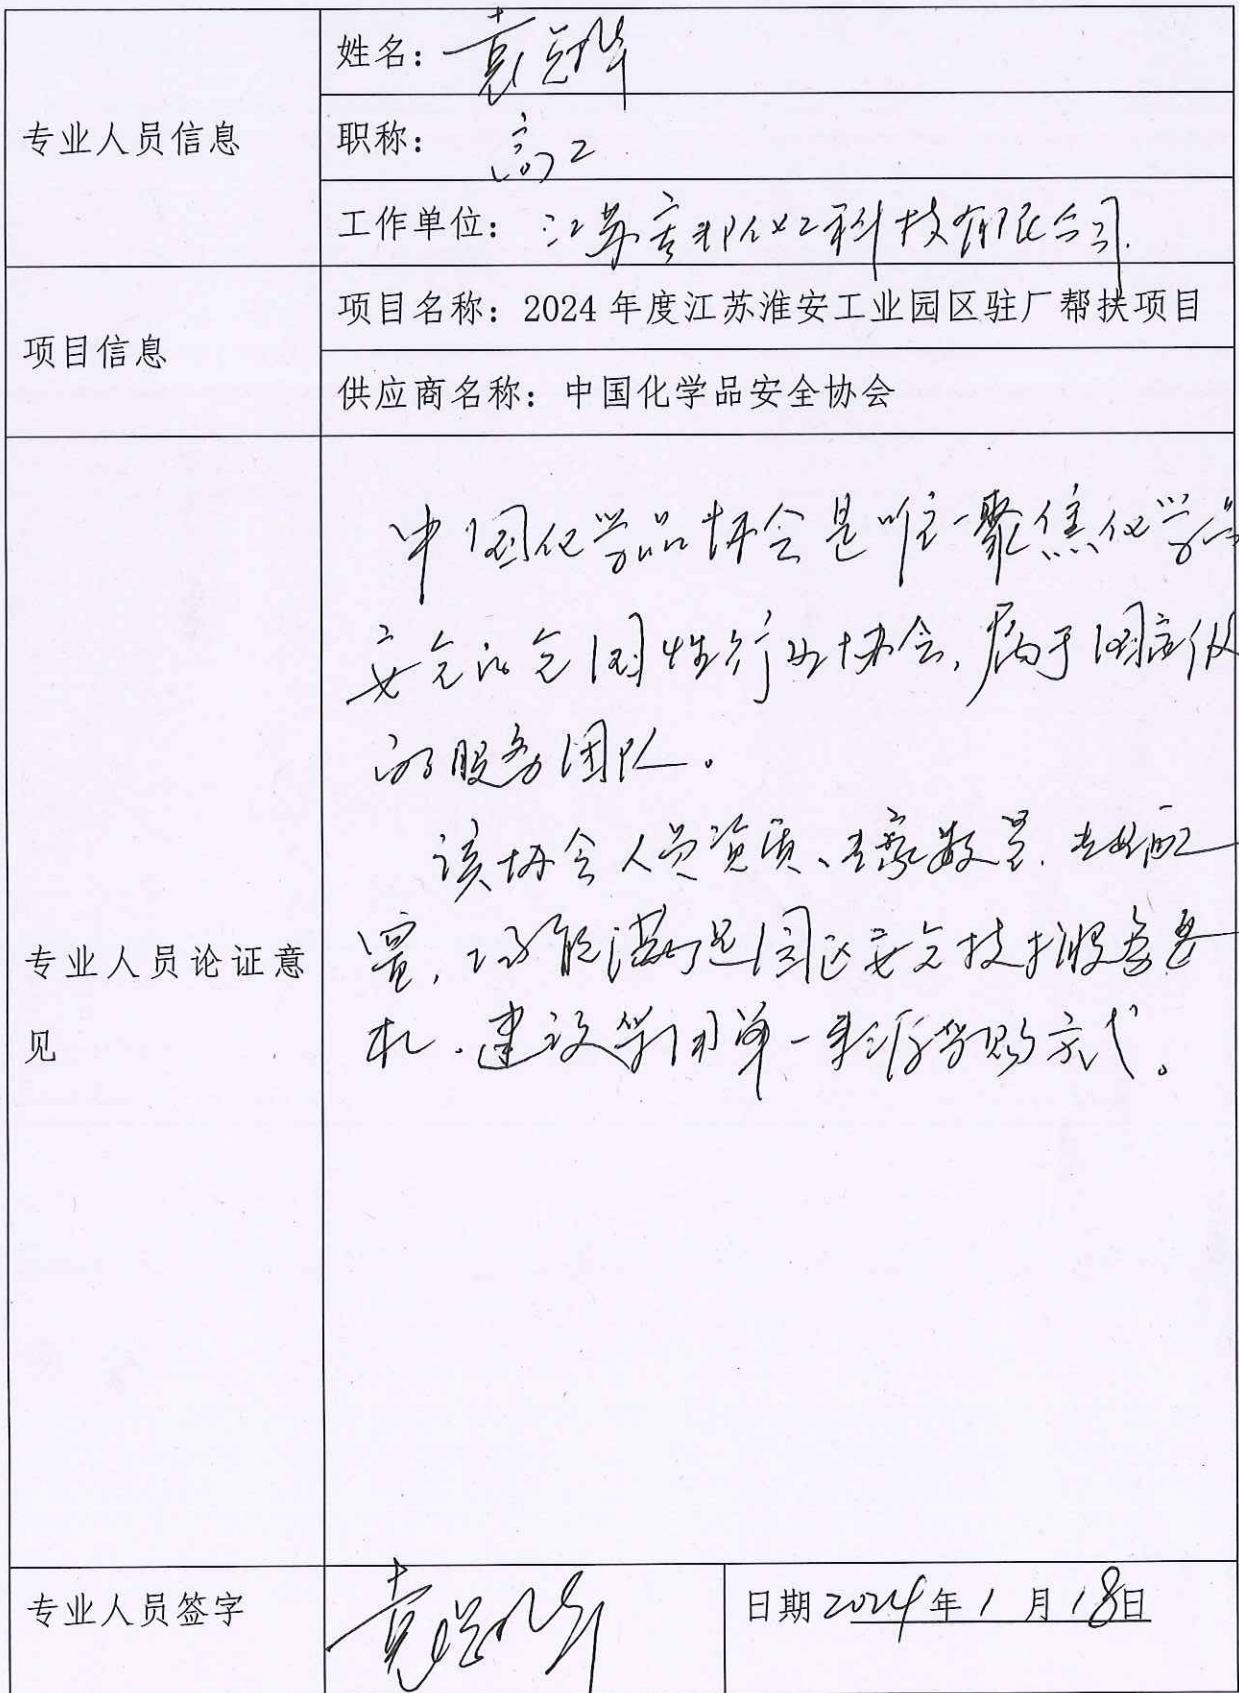 专业人员信息
姓名：袁
职称：高工
工作单位：江苏 化工科技有限公司
项目信息
项目名称：2024 年度江苏淮安工业园区驻厂帮扶项目
供应商名称：中国化学品安全协会
专业人员论证意
见
中国化学品协会是唯一聚焦化学品
安全的全国性行业协会，属于国家级
的服务团队。
该协会人员资质、专家数量、专业配
置，均能满足园区安全技术服务要
求，建议采用单一来源采购方式。
专业人员签字
袁
日期 2024 年 1 月 18 日